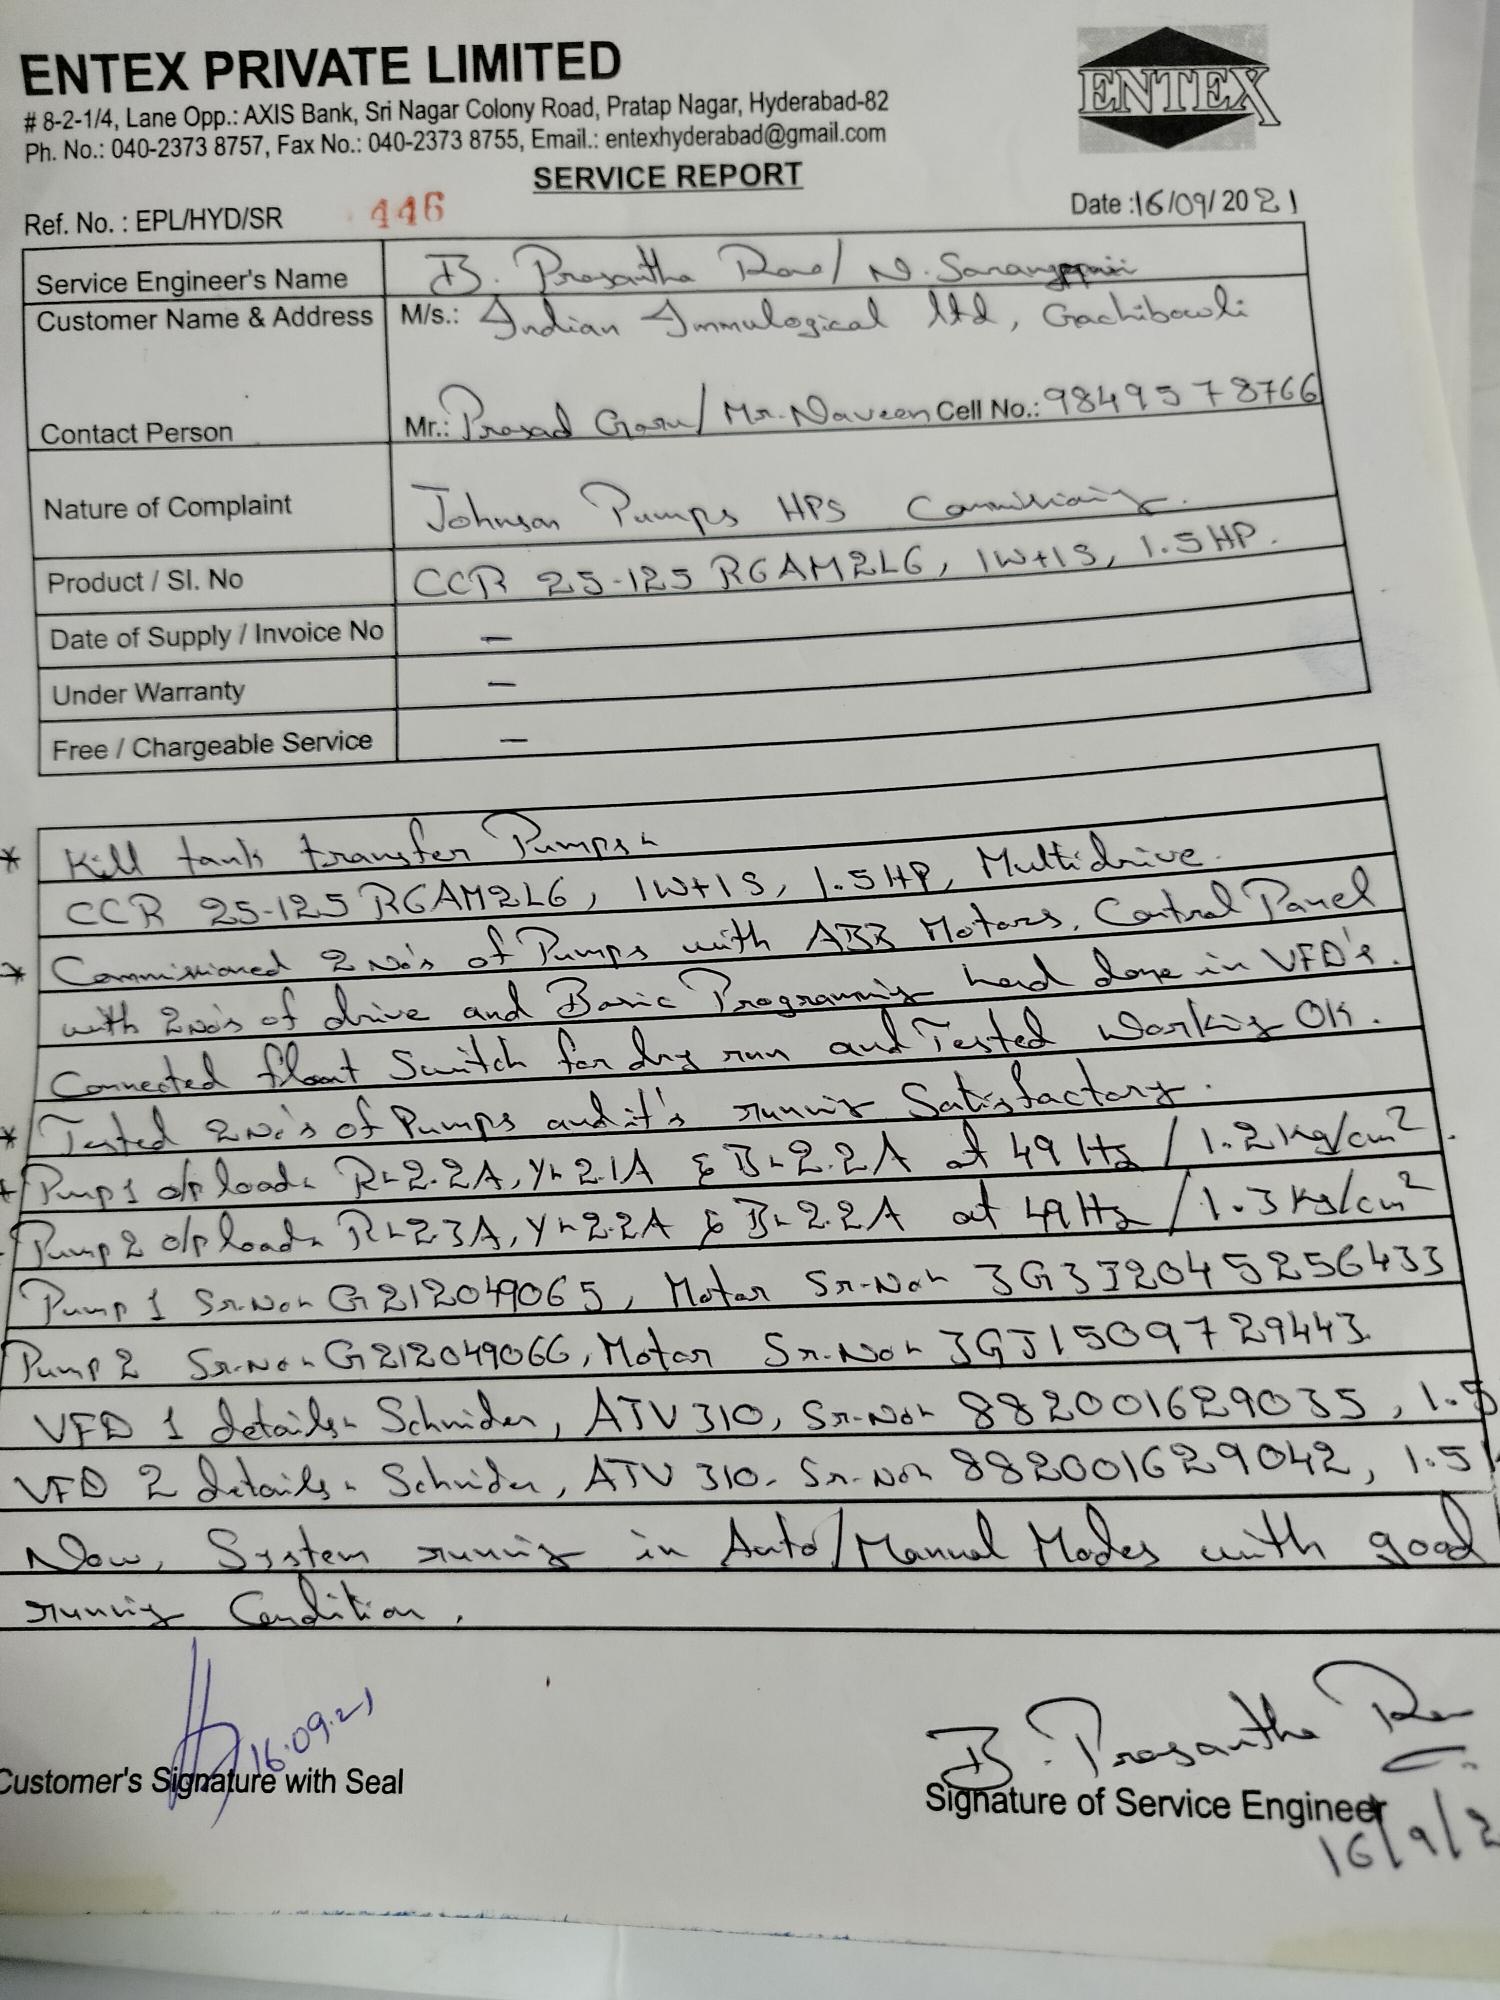 ENTEX PRIVATE LIMITED
ENTEX
# 8-2-1/4, Lane Opp.: AXIS Bank, Sri Nagar Colony Road, Pratap Nagar, Hyderabad-82
Ph. No.: 040-2373 8757, Fax No.: 040-2373 8755, Email.: entexhyderabad@gmail.com
SERVICE REPORT
Ref. No. : EPL/HYD/SR 446 Date :16/09/2021
Service Engineer's Name B. Prasantha Rao/ N.
Customer Name & Address M/s.: Indian Immulogical ltd, Gachibowli
Contact Person Mr.: Prasad Garu/Mr. Naveen Cell No.: 9849578766
Nature of Complaint Johnson Pumps HPS
Product / Sl. No CCR 25-125 RGAM2LG, 1W+1S, 1.5HP.
Date of Supply / Invoice No –
Under Warranty –
Free / Chargeable Service –
* Kill tank transfer Pumps-
CCR 25-125 RGAM2LG, 1W+1S, 1.5HP, Multidrive.
* Commissioned 2 No's of Pumps with ABB Motors, Control Panel
with 2No's of drive and Basic Programming had done in VFD's.
Connected float Switch for dry run and Tested Working OK.
* Tested 2No's of Pumps and it's running Satisfactory.
* Pump 1 o/p load- R-2.2A, Y-2.1A & B-2.2A at 49 Hz / 1.2 kg/cm².
Pump 2 o/p load- R-2.3A, Y-2.2A & B-2.2A at 49Hz / 1.3 kg/cm²
Pump 1 Sr.No- G212049065, Motor Sr.No- 3G3J2045256433
Pump 2 Sr.No- G212049066, Motor Sr.No- 3GJ1509729443
VFD 1 details- Schnider, ATV 310, Sr.No- 882001629035, 1.5
VFD 2 details- Schnider, ATV 310. Sr.No- 882001629042, 1.5
Now, System running in Auto/Manual Modes with good
running Condition.
16.09.21
Customer's Signature with Seal
B. Prasantha Rao
Signature of Service Engineer
16/9/2